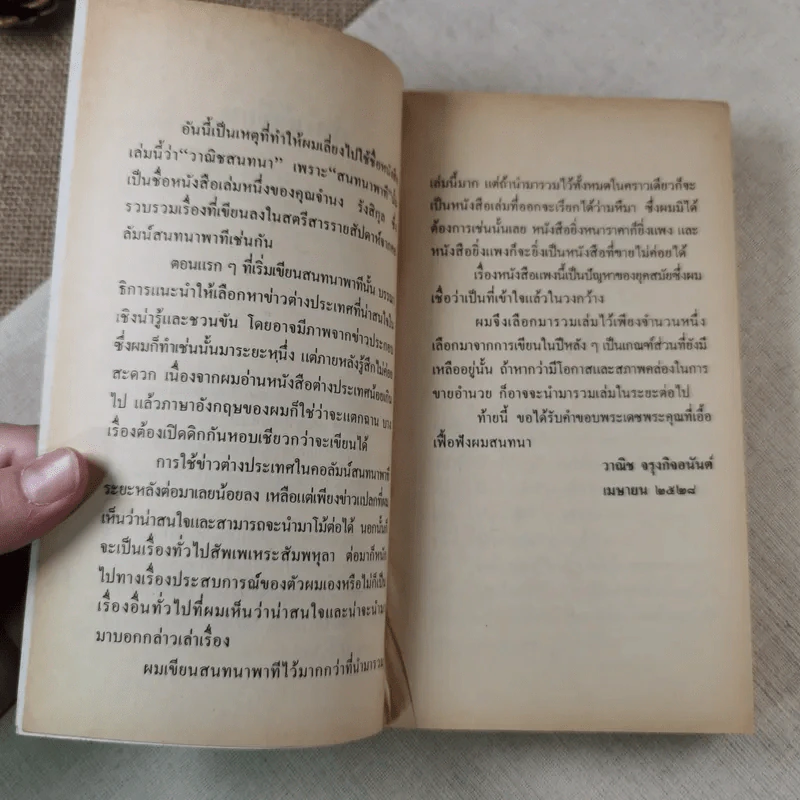 อันนี้เป็นเหตุที่ทำให้ผมเลี่ยงไปใช้ชื่อหนังสือ
เล่มนี้ว่า“วาณิชสนทนา” เพราะ“สนทนาพาที”
เป็นชื่อหนังสือเล่มหนึ่งของคุณจำนง รังสิกุล ซึ่ง
รวบรวมเรื่องที่เขียนลงในสตรีสารรายสัปดาห์จาก
ลัมน์สนทนาพาทีเช่นกัน
ตอนแรก ๆ ที่เริ่มเขียนสนทนาพาทีนั้น บรรณา
ธิการแนะนำให้เลือกหาข่าวต่างประเทศที่น่าสนใจใน
เชิงน่ารู้และชวนขัน โดยอาจมีภาพจากข่าวประกอบ
ซึ่งผมก็ทำเช่นนั้นมาระยะหนึ่ง แต่ภายหลังรู้สึกไม่ค่อย
สะดวก เนื่องจากผมอ่านหนังสือต่างประเทศน้อยเกิน
ไป แล้วภาษาอังกฤษของผมก็ใช่ว่าจะแตกฉาน บาง
เรื่องต้องเปิดดิกกันหอบเชียวกว่าจะเขียนได้
การใช้ข่าวต่างประเทศในคอลัมน์สนทนาพาที
ระยะหลังต่อมาเลยน้อยลง เหลือแต่เพียงข่าวแปลกที่ผม
เห็นว่าน่าสนใจและสามารถจะนำมาโม้ต่อได้ นอกนั้นก็
จะเป็นเรื่องทั่วไปสัพเพเหระสัมพหุลา ต่อมาก็หนัก
ไปทางเรื่องประสบการณ์ของตัวผมเองหรือไม่ก็เป็น
เรื่องอื่นทั่วไปที่ผมเห็นว่าน่าสนใจและน่าจะนำ
มาบอกกล่าวเล่าเรื่อง
ผมเขียนสนทนาพาทีไว้มากกว่าที่นำมารวม
เล่มนี้มาก แต่ถ้านำมารวมไว้ทั้งหมดในคราวเดียวก็จะ
เป็นหนังสือเล่มที่ออกจะเรียกได้ว่ามหึมา ซึ่งผมมิได้
ต้องการเช่นนั้นเลย หนังสือยิ่งหนาราคาก็ยิ่งแพง และ
หนังสือยิ่งแพงก็จะยิ่งเป็นหนังสือที่ขายไม่ค่อยได้
เรื่องหนังสือแพงนี้เป็นปัญหาของยุคสมัยซึ่งผม
เชื่อว่าเป็นที่เข้าใจแล้วในวงกว้าง
ผมจึงเลือกมารวมเล่มไว้เพียงจำนวนหนึ่ง
เลือกมาจากการเขียนในปีหลัง ๆ เป็นเกณฑ์ส่วนที่ยังมี
เหลืออยู่นั้น ถ้าหากว่ามีโอกาสและสภาพคล่องในการ
ขายอำนวย ก็อาจจะนำมารวมเล่มในระยะต่อไป
ท้ายนี้ ขอได้รับคำขอบพระเดชพระคุณที่เอื้อ
เฟื้อฟังผมสนทนา
วาณิช จรุงกิจอนันต์
เมษายน ๒๕๒๘